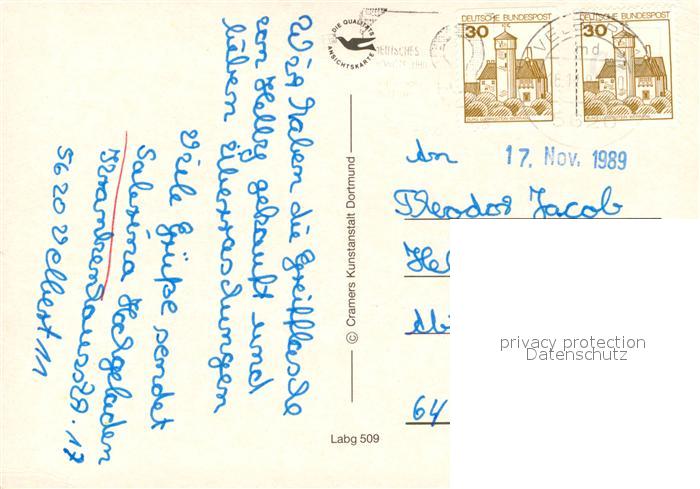 Wir haben die Greifflasche
von Helly gekauft und
lieben Überraschungen
Viele Grüße sendet
Sabrina
Krankenhausstr. 17
5620 Velbert 11
DIE QUALITÄTS
ANSICHTSKARTE
© Cramers Kunstanstalt Dortmund
Labg 509
DEUTSCHE BUNDESPOST
30
DEUTSCHE BUNDESPOST
30
17. Nov. 1989
An
Theodor Jacob
He
64
privacy protection
Datenschutz